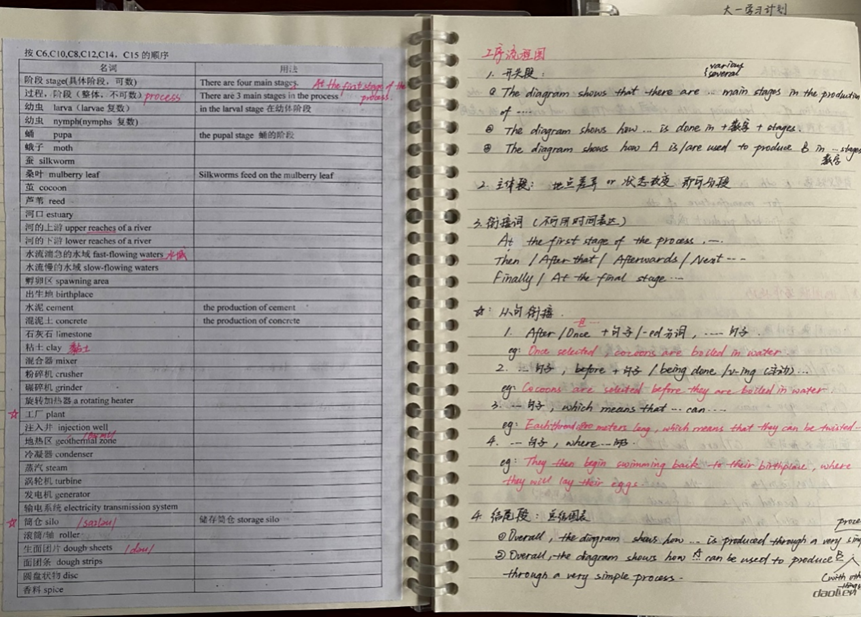 大一学习计划
按 C6,C10,C8,C12,C14, C15 的顺序
名词 用法
阶段 stage(具体阶段，可数) There are four main stages. At the first stage of the process.
过程，阶段（整体，不可数）process There are 3 main stages in the process
幼虫 larva (larvae 复数) in the larval stage 在幼体阶段
幼虫 nymph(nymphs 复数)
蛹 pupa the pupal stage 蛹的阶段
蛾子 moth
蚕 silkworm
桑叶 mulberry leaf Silkworms feed on the mulberry leaf
茧 cocoon
芦苇 reed
河口 estuary
河的上游 upper reaches of a river
河的下游 lower reaches of a river
水流湍急的水域 fast-flowing waters 水域
水流慢的水域 slow-flowing waters
孵卵区 spawning area
出生地 birthplace
水泥 cement the production of cement
混泥土 concrete the production of concrete
石灰石 limestone
粘土 clay 黏土
混合器 mixer
粉碎机 crusher
碾碎机 grinder
旋转加热器 a rotating heater
☆ 工厂 plant
注入井 injection well
地热区 geothermal zone
冷凝器 condenser
蒸汽 steam
涡轮机 turbine
发电机 generator
输电系统 electricity transmission system
☆ 筒仓 silo 储存筒仓 storage silo
滚筒/轴 roller
生面团片 dough sheets /dəu/
面团条 dough strips
圆盘状物 disc
香料 spice
工序流程图
1. 开头段: various several
① The diagram shows that there are … main stages in the production
of ……
② The diagram shows how … is done in + 数字 + stages.
③ The diagram shows how A is/are used to produce B in … stages
数字
2. 主体段: 地点差异 or 状态改变 即可分段
3. 衔接词 (不可用时间表达)
At the first stage of the process, ….
Then / After that / Afterwards / Next …
Finally / At the final stage …
☆: 从句衔接
1. After / Once + 句子 / -ed 分词, …… 句子.
eg: Once selected, cocoons are boiled in water
2. … 句子, before + 句子 / being done / v-ing (主动)…
eg: Cocoons are selected before they are boiled in water
3. … 句子, which means that … can …
eg: Each thread meters long, which means that they can be twisted
4. … 句子, where … 句子.
eg: They then begin swimming back to their birthplace, where
they will lay their eggs
4. 结尾段: 总结图表
① Overall, the diagram shows how … is produced through a very sim
② Overall, the diagram shows how A can be used to produce B
through a very simple process.
(with oth